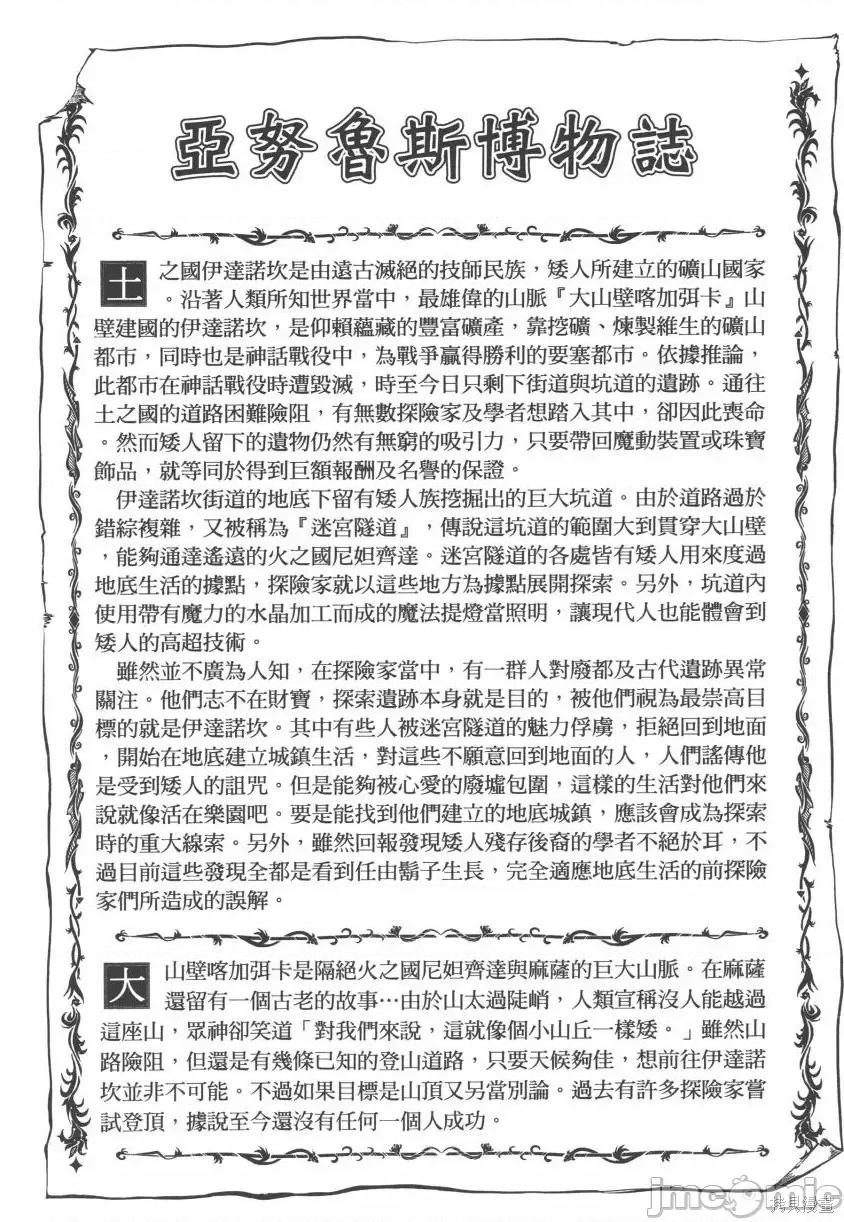 亞努魯斯博物誌
土之國伊達諾坎是由遠古滅絕的技師民族，矮人所建立的礦山國家
。沿著人類所知世界當中，最雄偉的山脈『大山壁喀加弭卡』山
壁建國的伊達諾坎，是仰賴蘊藏的豐富礦產，靠挖礦、煉製維生的礦山
都市，同時也是神話戰役中，為戰爭贏得勝利的要塞都市。依據推論，
此都市在神話戰役時遭毀滅，時至今日只剩下街道與坑道的遺跡。通往
土之國的道路困難險阻，有無數探險家及學者想踏入其中，卻因此喪命
。然而矮人留下的遺物仍然有無窮的吸引力，只要帶回魔動裝置或珠寶
飾品，就等同於得到巨額報酬及名譽的保證。
伊達諾坎街道的地底下留有矮人族挖掘出的巨大坑道。由於道路過於
錯綜複雜，又被稱為『迷宮隧道』，傳說這坑道的範圍大到貫穿大山壁
，能夠通達遙遠的火之國尼妲齊達。迷宮隧道的各處皆有矮人用來度過
地底生活的據點，探險家就以這些地方為據點展開探索。另外，坑道內
使用帶有魔力的水晶加工而成的魔法提燈當照明，讓現代人也能體會到
矮人的高超技術。
雖然並不廣為人知，在探險家當中，有一群人對廢都及古代遺跡異常
關注。他們志不在財寶，探索遺跡本身就是目的，被他們視為最崇高目
標的就是伊達諾坎。其中有些人被迷宮隧道的魅力俘虜，拒絕回到地面
，開始在地底建立城鎮生活，對這些不願意回到地面的人，人們謠傳他
是受到矮人的詛咒。但是能夠被心愛的廢墟包圍，這樣的生活對他們來
說就像活在樂園吧。要是能找到他們建立的地底城鎮，應該會成為探索
時的重大線索。另外，雖然回報發現矮人殘存後裔的學者不絕於耳，不
過目前這些發現全都是看到任由鬍子生長，完全適應地底生活的前探險
家們所造成的誤解。
大山壁喀加弭卡是隔絕火之國尼妲齊達與麻薩的巨大山脈。在麻薩
還留有一個古老的故事…由於山太過陡峭，人類宣稱沒人能越過
這座山，眾神卻笑道「對我們來說，這就像個小山丘一樣矮。」雖然山
路險阻，但還是有幾條已知的登山道路，只要天候夠佳，想前往伊達諾
坎並非不可能。不過如果目標是山頂又另當別論。過去有許多探險家嘗
試登頂，據說至今還沒有任何一個人成功。
jmcomic
拷貝漫畫